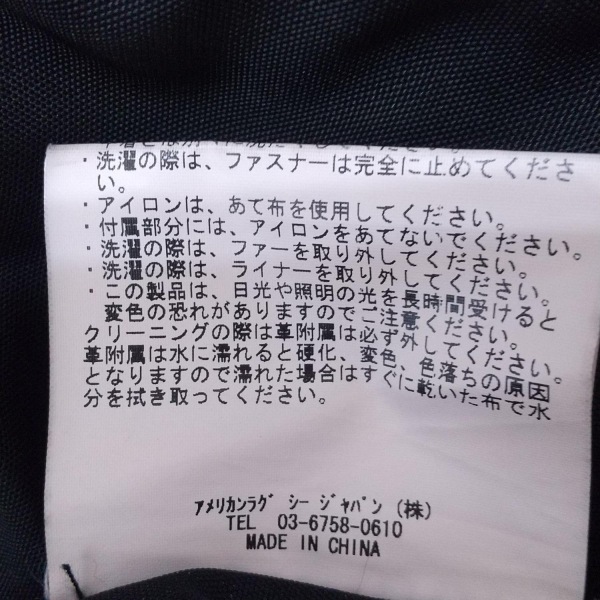 ・洗濯の際は、ファスナーは完全に止めてくださ
い。
・アイロンは、あて布を使用してください。
・付属部分には、アイロンをあてないでください。
・洗濯の際は、ファーを取り外してください。
・洗濯の際は、ライナーを取り外してください。
・この製品は、日光や照明の光を長時間受けると
変色の恐れがありますのでご注意ください。
クリーニングの際は革附属は必ず外してください。
革附属は水に濡れると硬化、変色、色落ちの原因
となりますので濡れた場合はすぐに乾いた布で水
分を拭き取ってください。
ｱﾒﾘｶﾝﾗｸﾞ ｼｰ ｼﾞｬﾊﾟﾝ (株)
TEL 03-6758-0610
MADE IN CHINA